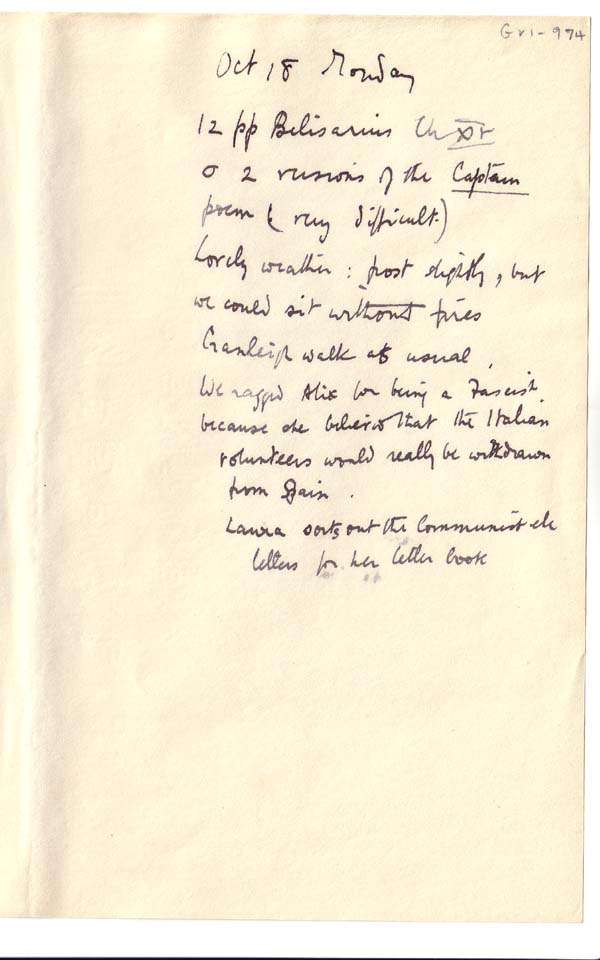 Gri-974
Oct 18 Monday
12 pp Belisarius Ch XV
& 2 versions of the Captain
poem (very difficult.)
Lovely weather: frost slightly, but
we could sit without fires
Cranleigh walk as usual.
We ragged Alix for being a Fascist,
because she believed that the Italian
volunteers would really be withdrawn
from Spain.
Laura sorts out the Communist etc
letters for her letter book